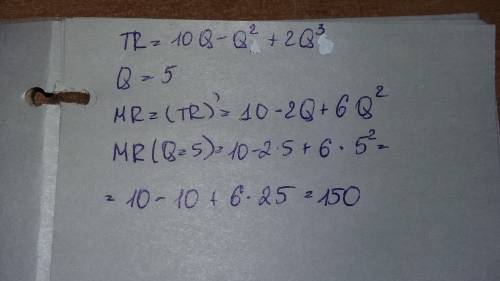 TR = 10Q - Q² + 2Q³
Q = 5
MR = (TR)' = 10 - 2Q + 6Q²
MR(Q=5) = 10 - 2·5 + 6·5² =
= 10 - 10 + 6·25 = 150